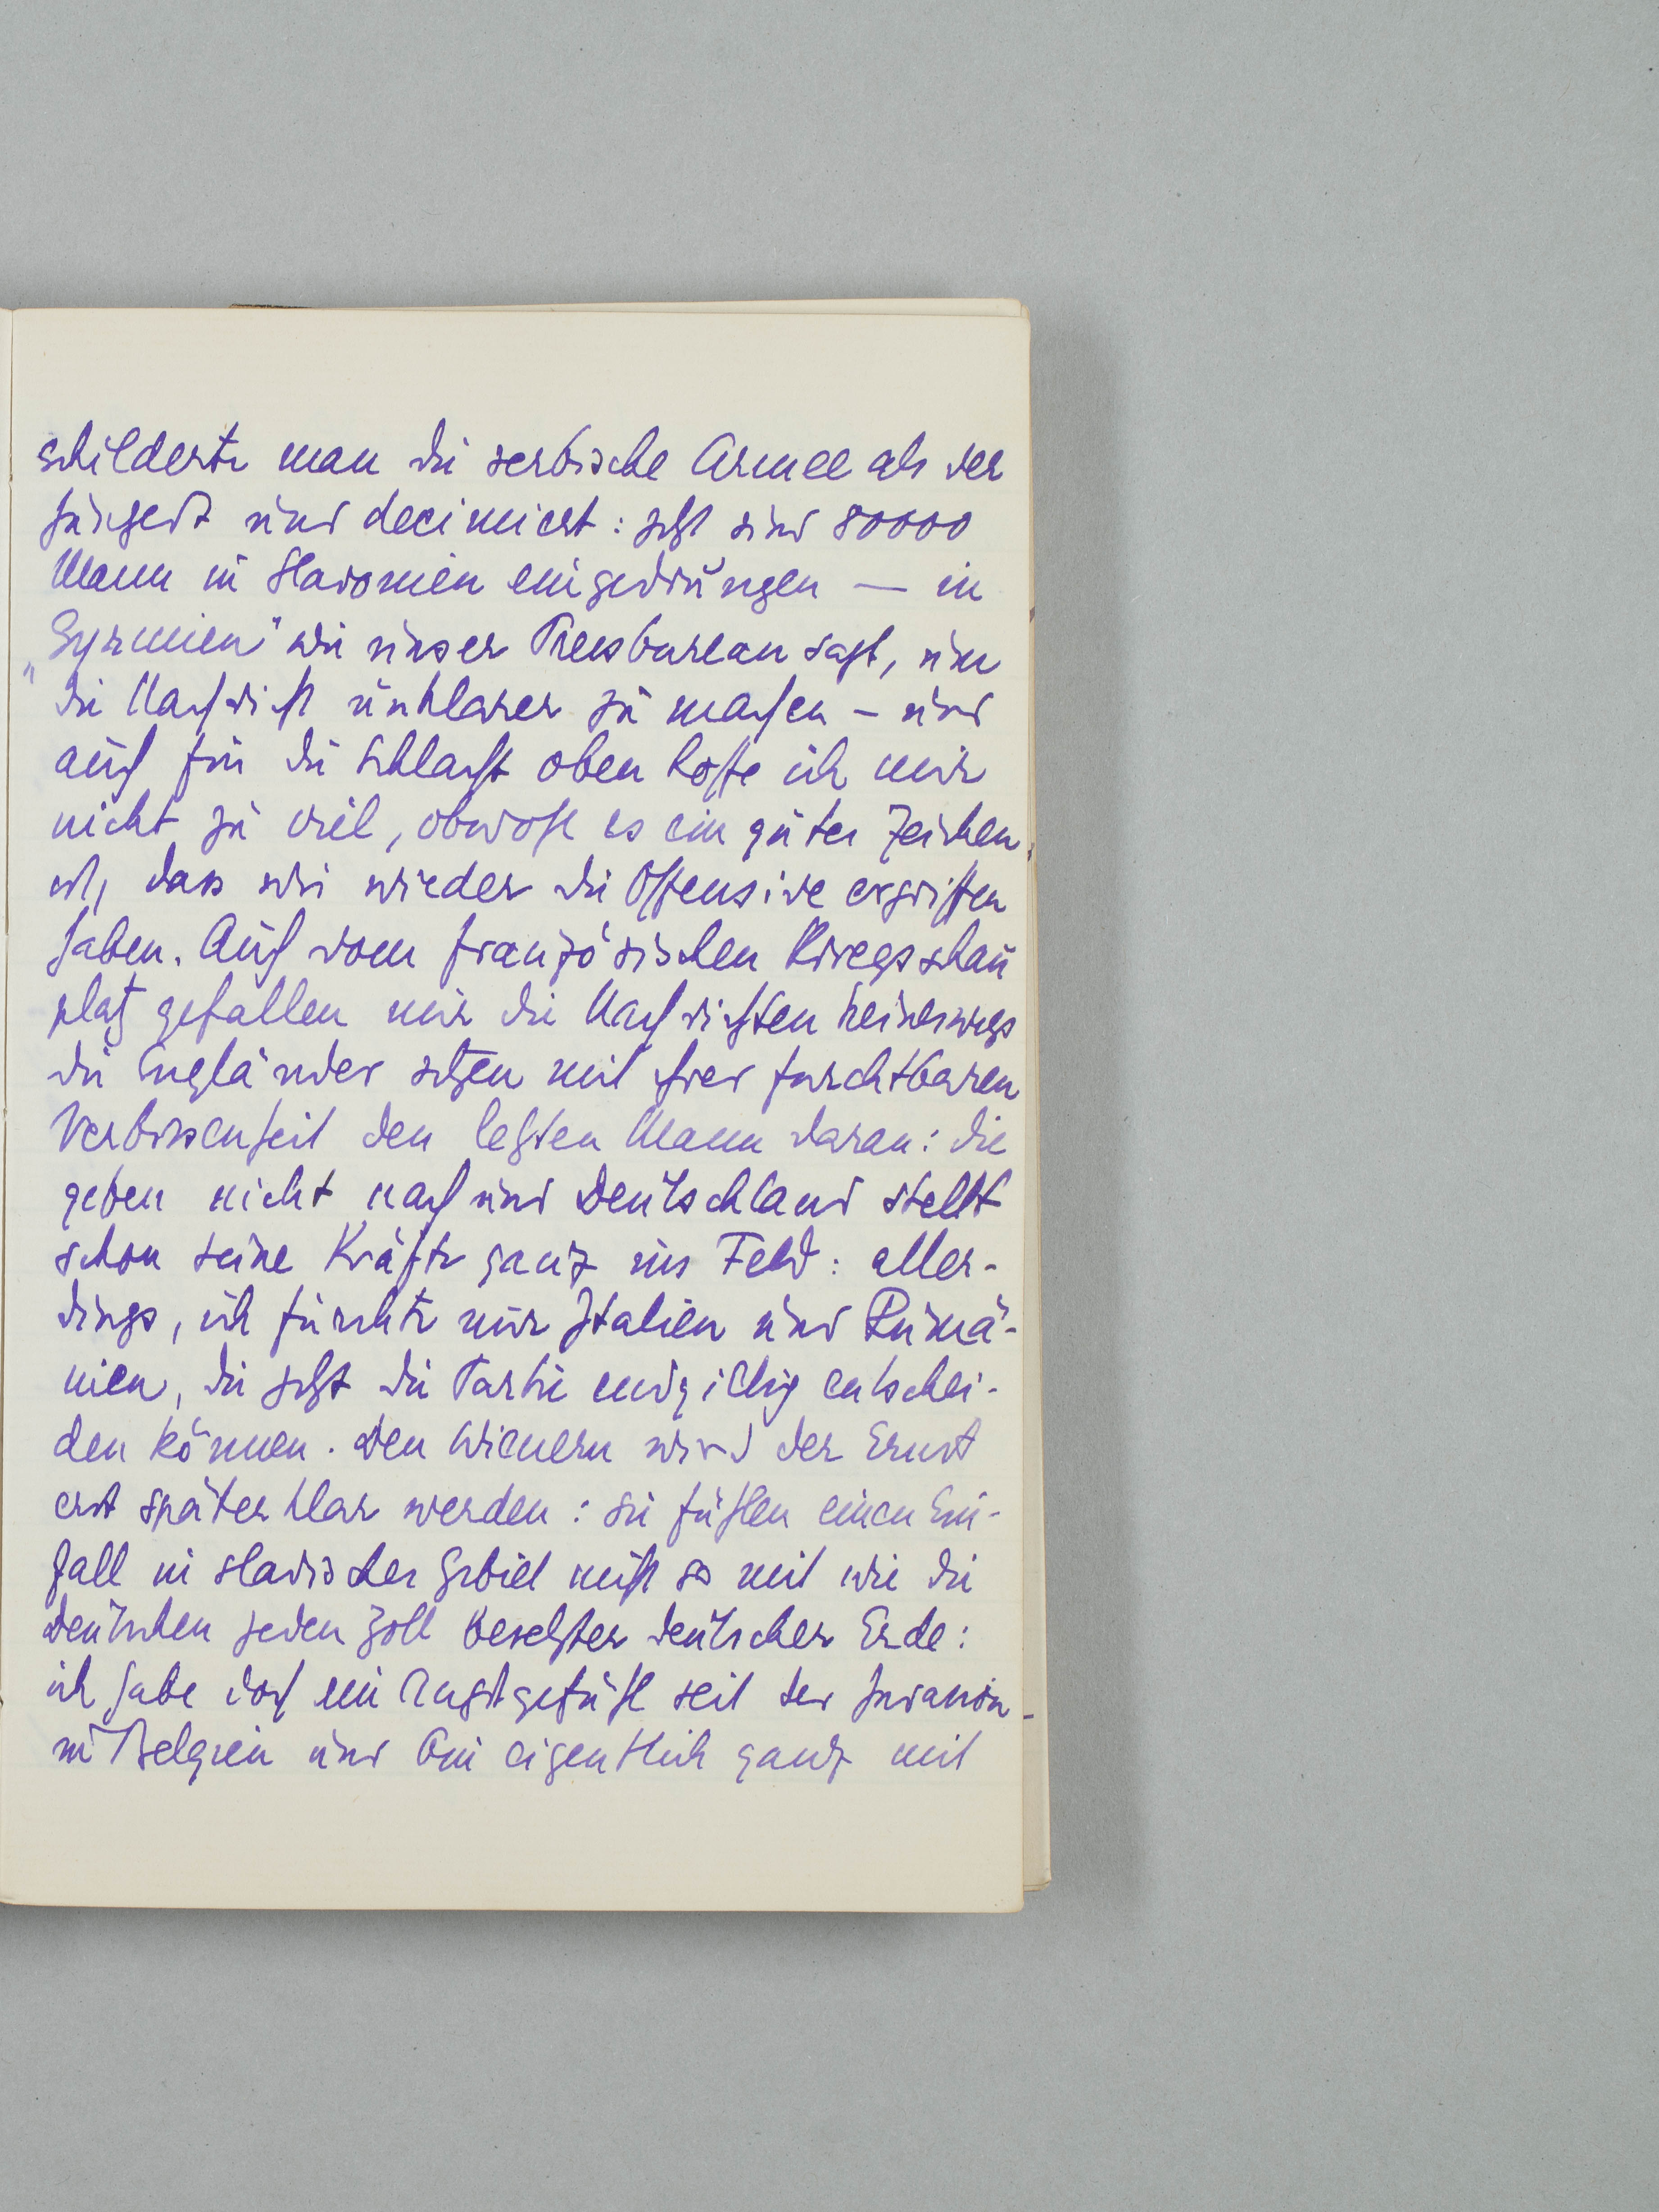 schilderte man die serbische Armee als ver
hungert und decimiert: jetzt sind 80000
Mann in Slavonien eingedrungen — in
„Syrmien" wie unser Pressbureau sagt, um
die Nachricht unklarer zu machen – und
auch für die Schlacht oben hoffe ich mir
nicht zu viel, obwohl es ein gutes Zeichen
ist, dass wir wieder die Offensive ergriffen
haben. Auch vom französischen Kriegsschau
platz gefallen mir die Nachrichten keineswegs
die Engländer setzen mit ihrer furchtbaren
Verbissenheit den letzten Mann daran: die
geben nicht nach und Deutschland stellt
schon seine Kräfte ganz ins Feld: aller-
dings, ich fürchte nur Italien und Rumä-
nien, die jetzt die Partie endgiltig entschei-
den können. Den Wienern wird der Ernst
erst später klar werden: sie fühlen einen Ein-
fall in slavisches Gebiet nicht so mit wie die
Deutschen jeden Zoll besetzter deutscher Erde:
ich habe doch ein Angstgefühl seit der Invasion
in Belgien und bin eigentlich ganz mit